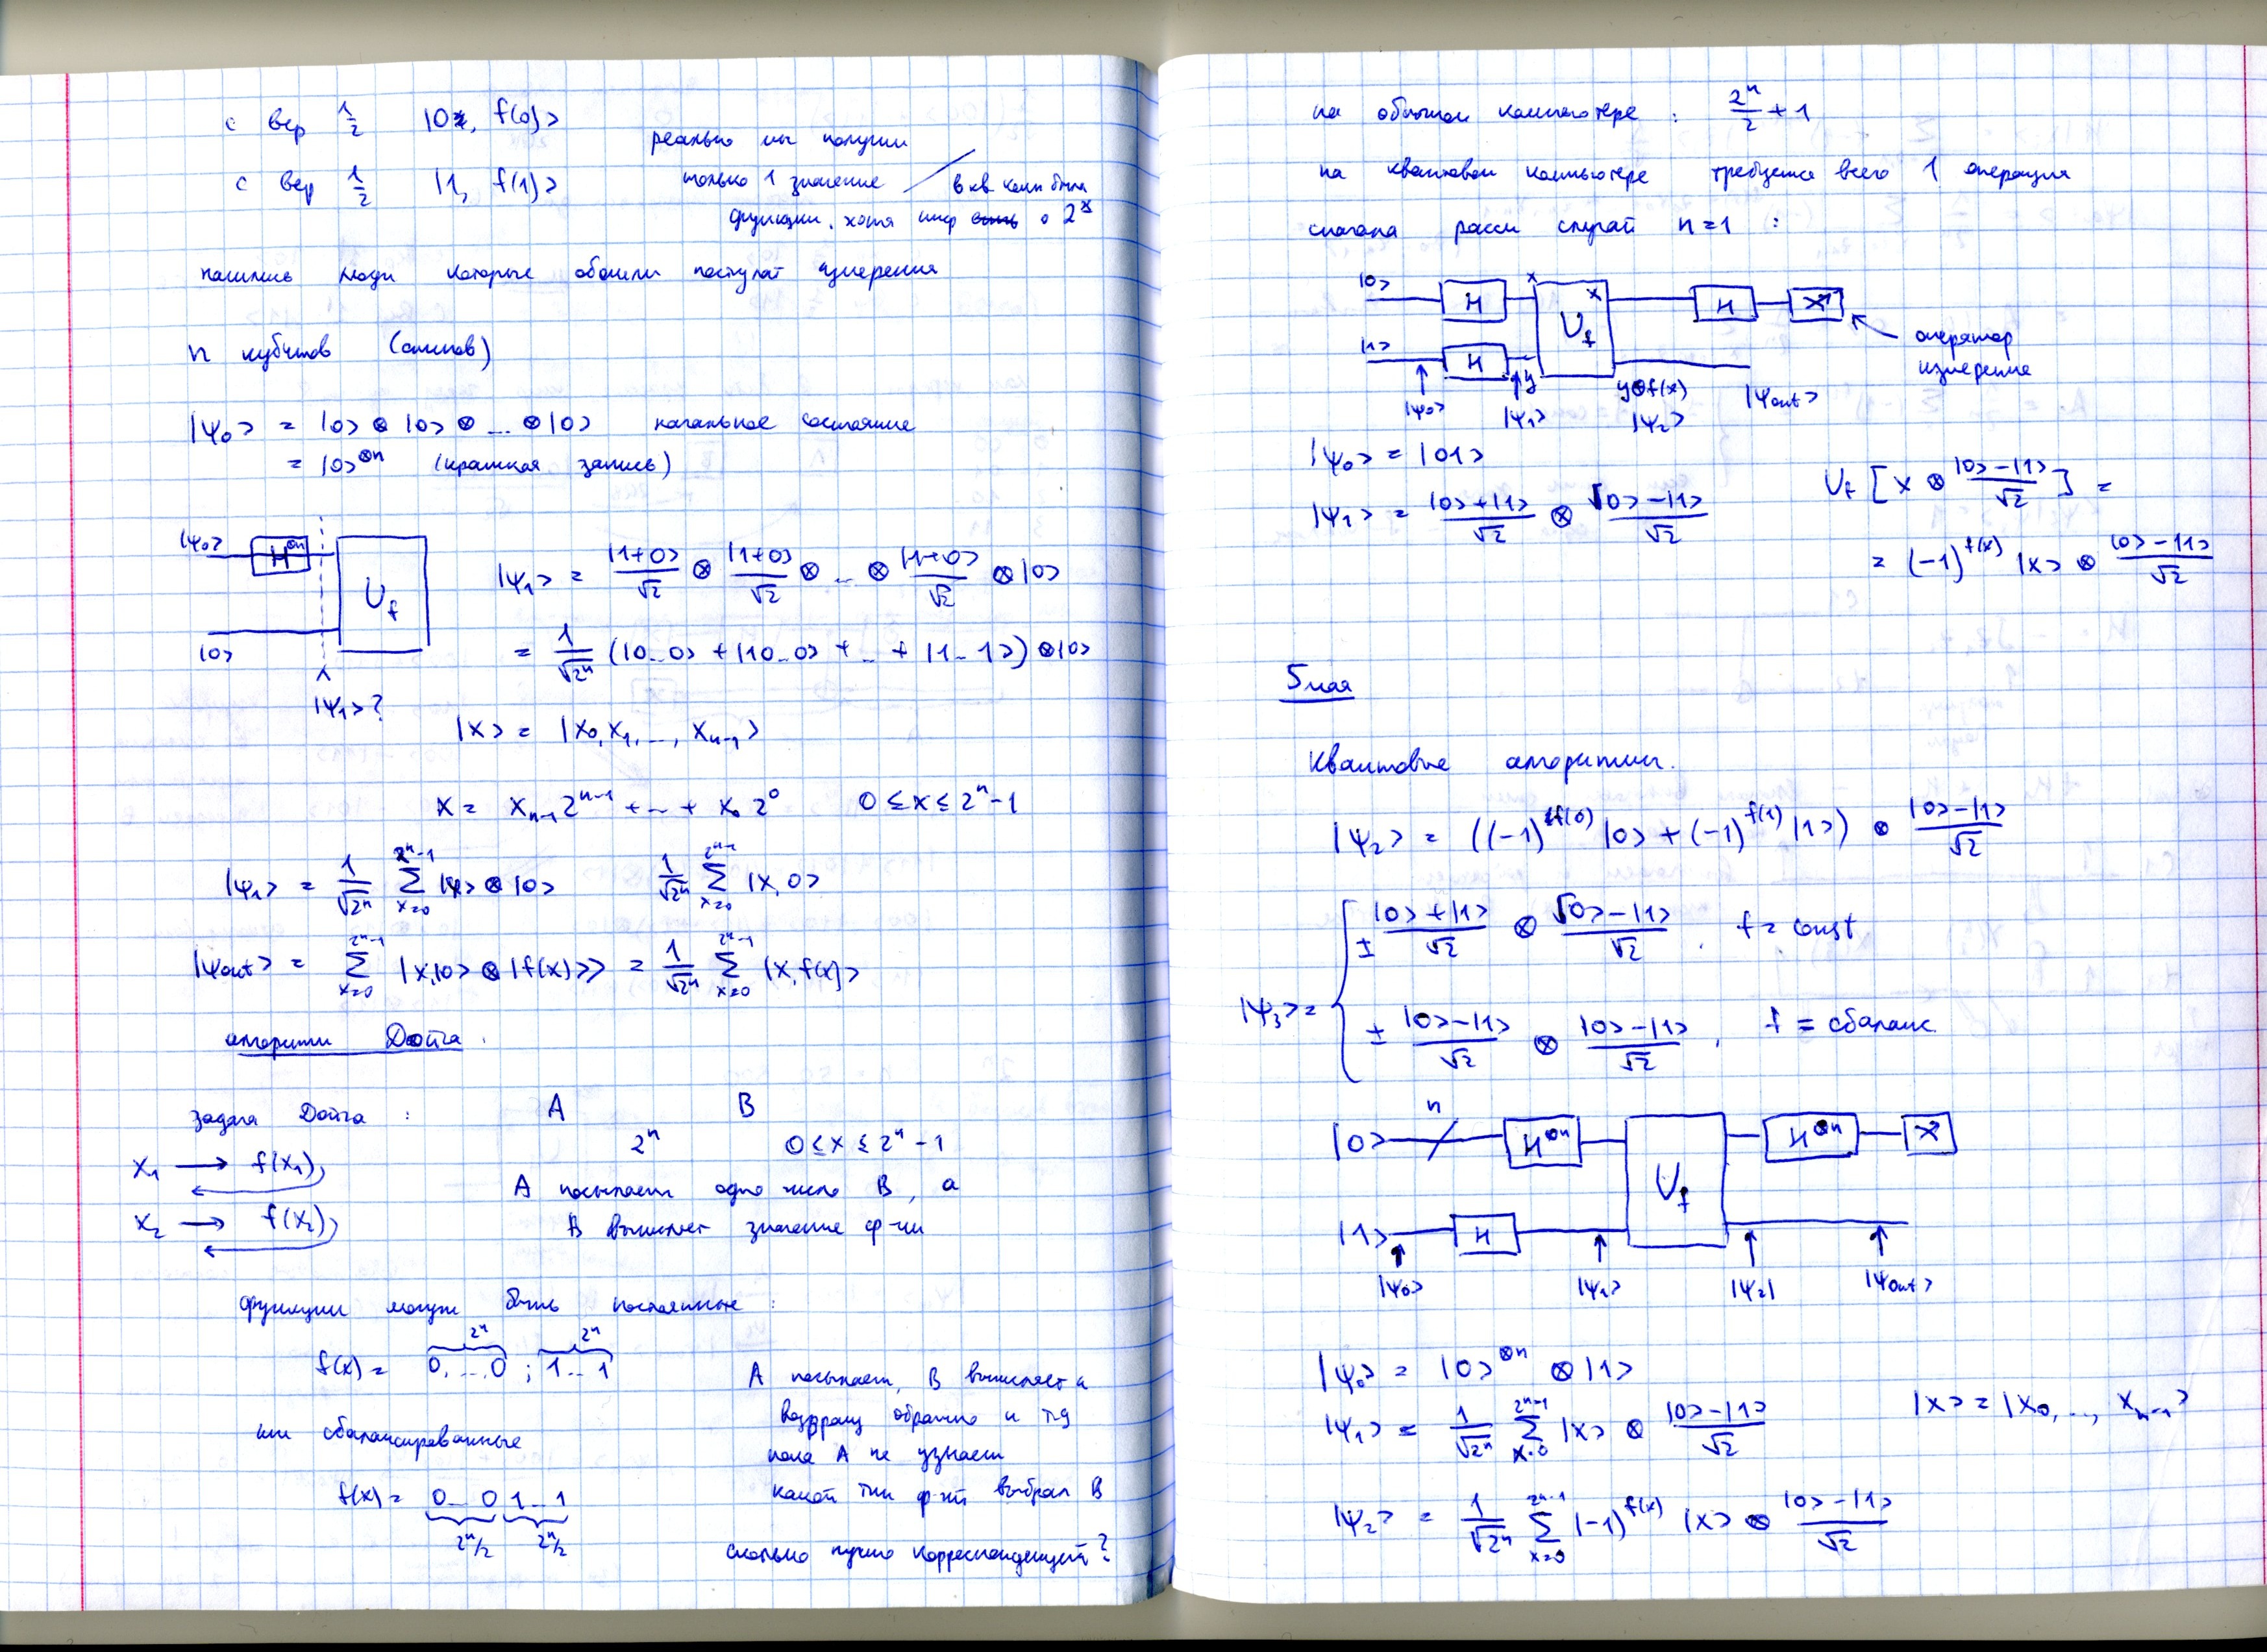 с вер 1/2 |0, f(0)>
с вер 1/2 |1, f(1)>
реально мы получим
только 1 значение
функции, хотя инф о 2ˣ
в кв комп была
нашлись люди которые обошли постулат измерения
n кубитов (спинов)
|ψ₀> = |0> ⊗ |0> ⊗ ... ⊗ |0> начальное состояние
= |0>^⊗n (краткая запись)
|ψ₀> H^⊗n U_f
|0>
|ψ₁> ?
|ψ₁> = |1+0>/√2 ⊗ |1+0>/√2 ⊗ ... ⊗ |1+0>/√2 ⊗ |0>
= 1/√2ⁿ (|0...0> + |10...0> + ... + |1...1>) ⊗ |0>
|x> = |x₀, x₁, ..., xₙ₋₁>
x = xₙ₋₁ 2ⁿ⁻¹ + ... + x₀ 2⁰ 0 ≤ x ≤ 2ⁿ - 1
|ψ₁> = 1/√2ⁿ Σ_{x=0}^{2ⁿ-1} |x> ⊗ |0> 1/√2ⁿ Σ_{x=0}^{2ⁿ-1} |x, 0>
|ψout> = Σ_{x=0}^{2ⁿ-1} |x,|0> ⊗ |f(x)>> = 1/√2ⁿ Σ_{x=0}^{2ⁿ-1} |x, f(x)>
алгоритм Дойча.
задача Дойча : A B
2ⁿ 0 ≤ x ≤ 2ⁿ - 1
x₁ → f(x₁)
x₂ → f(x₂)
A посылает одно число B, а
B вычисляет значение ф-ии
функции могут быть постоянные :
2ⁿ 2ⁿ
f(x) = 0, ... 0 ; 1 ... 1
или сбалансированные
f(x) = 0 ... 0 1 ... 1
2ⁿ/2 2ⁿ/2
A посылает, B вычисляет и
возвращ обратно и тд
пока A не узнает
какой тип ф-ии выбрал B
сколько нужно корреспонденций?
на обычном компьютере : 2ⁿ/2 + 1
на квантовом компьютере требуется всего 1 операция
сначала рассм случай n=1 :
|0> H x U_f x H
|1> H y y⊕f(x)
|ψ₀> |ψ₁> |ψ₂> |ψout>
оператор
измерения
|ψ₀> = |01>
|ψ₁> = (|0>+|1>)/√2 ⊗ (|0>-|1>)/√2
U_f [x ⊗ (|0>-|1>)/√2] =
= (-1)^f(x) |x> ⊗ (|0>-|1>)/√2
5 мая
Квантовые алгоритмы.
|ψ₂> = ((-1)^f(0) |0> + (-1)^f(1) |1>) ⊗ (|0>-|1>)/√2
|ψ₃> = { ± (|0>+|1>)/√2 ⊗ (|0>-|1>)/√2, f = const
± (|0>-|1>)/√2 ⊗ (|0>-|1>)/√2, f = сбаланс
|0> n H^⊗n U_f H^⊗n
|1> H
|ψ₀> |ψ₁> |ψ₂| |ψout>
|ψ₀> = |0>^⊗n ⊗ |1>
|ψ₁> = 1/√2ⁿ Σ_{x=0}^{2ⁿ-1} |x> ⊗ (|0>-|1>)/√2 |x> = |x₀, ..., xₙ₋₁>
|ψ₂> = 1/√2ⁿ Σ_{x=0}^{2ⁿ-1} (-1)^f(x) |x> ⊗ (|0>-|1>)/√2